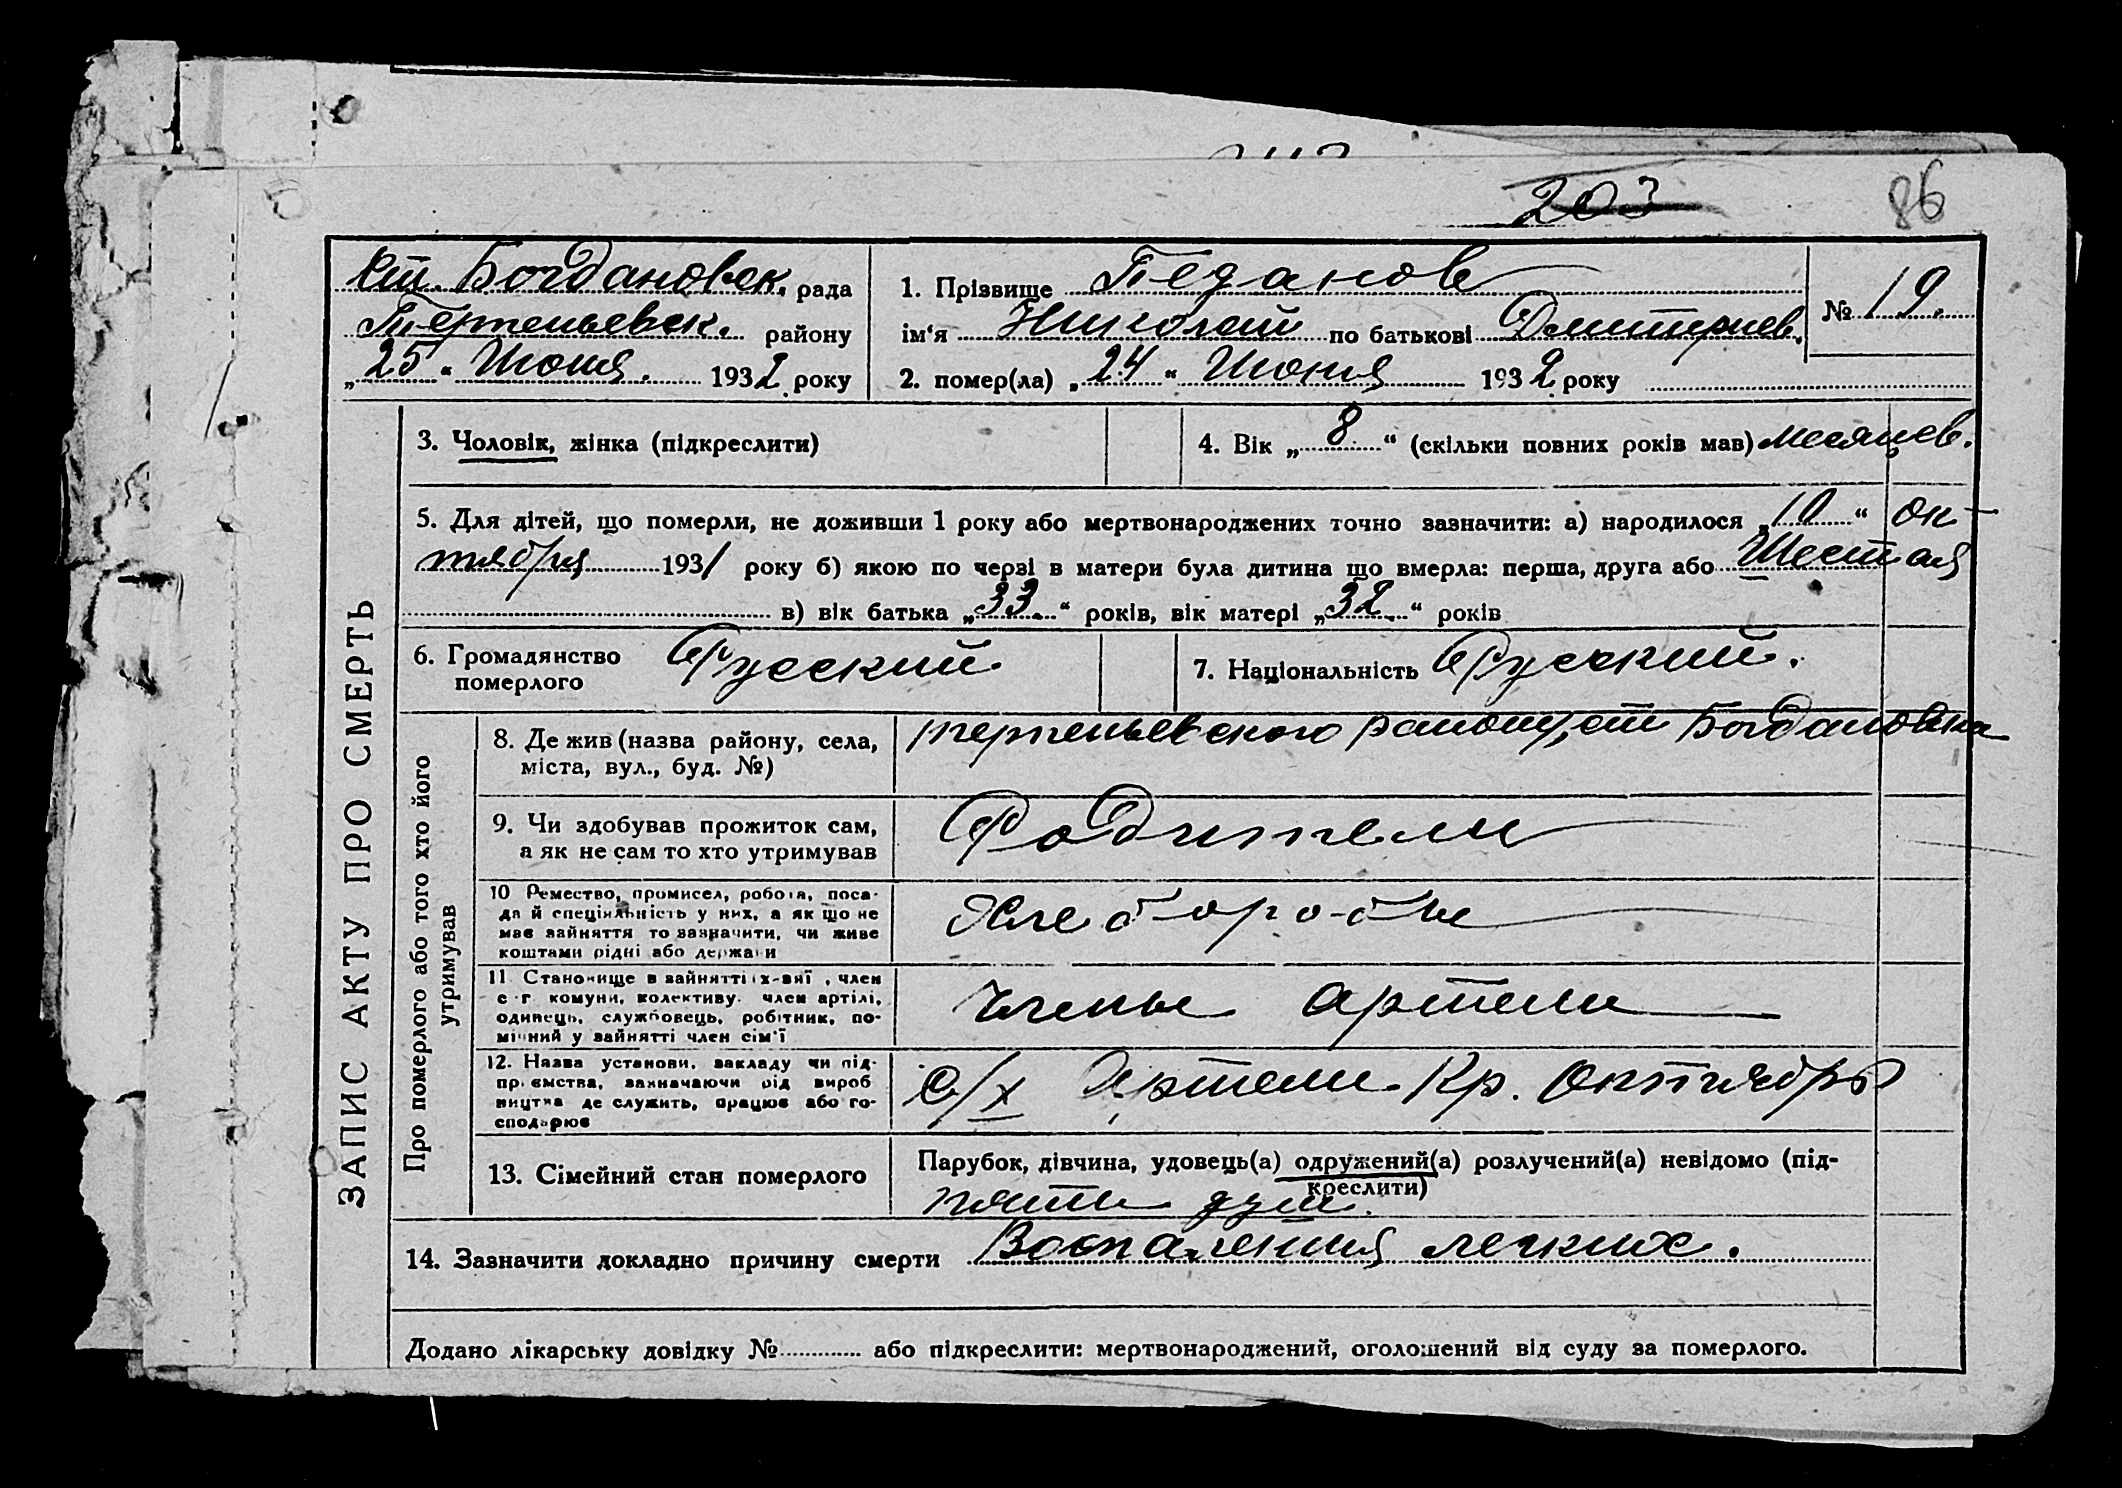 203
86
Ст. Богдановск. рада
Терпеньевск. району
„25“ Июня. 1932 року
1. Прізвище Педанов
ім‘я Николай по батькові Дмитриев.
2. помер(ла) „24“ Июня 1932 року
№ 19.
ЗАПИС АКТУ ПРО СМЕРТЬ
3. Чоловік, жінка (підкреслити)
4. Вік „8“ (скільки повних років мав) месяцев.
5. Для дітей, що померли, не доживши 1 року або мертвонароджених точно зазначити: а) народилося „10“ ок-
тября 1931 року б) якою по черзі в матери була дитина що вмерла: перша, друга або Шестая
в) вік батька „33“ років, вік матері „32“ років
6. Громадянство
померлого
Русский
7. Національність Русский.
Про померлого або того хто його
утримував
8. Де жив (назва району, села,
міста, вул., буд. №)
терпеньевского району, ст Богдановка
9. Чи здобував прожиток сам,
а як не сам то хто утримував
Родители
10 Ремество, промисел, робота, поса-
да й спеціяльність у них, а як що не
має зайняття то зазначити, чи живе
коштами рідні або держави
Хлеборобы
11 Становище в зайнятті х-вяї, член
с-г комуни, колективу. член артілі,
одинець, службовець, робітник, по-
мічний у зайнятті член сім'ї
Члены артели
12. Назва установи, закладу чи під-
приємства, зазначаючи рід вироб
ництва де служить, працює або го-
сподарює
с/х Артели Кр. Октябрь
13. Сімейний стан померлого
Парубок, дівчина, удовець(а) одружений(а) розлучений(а) невідомо (під-
креслити)
пяти душ.
14. Зазначити докладно причину смерти Воспаления легких.
Додано лікарську довідку № або підкреслити: мертвонароджений, оголошений від суду за померлого.